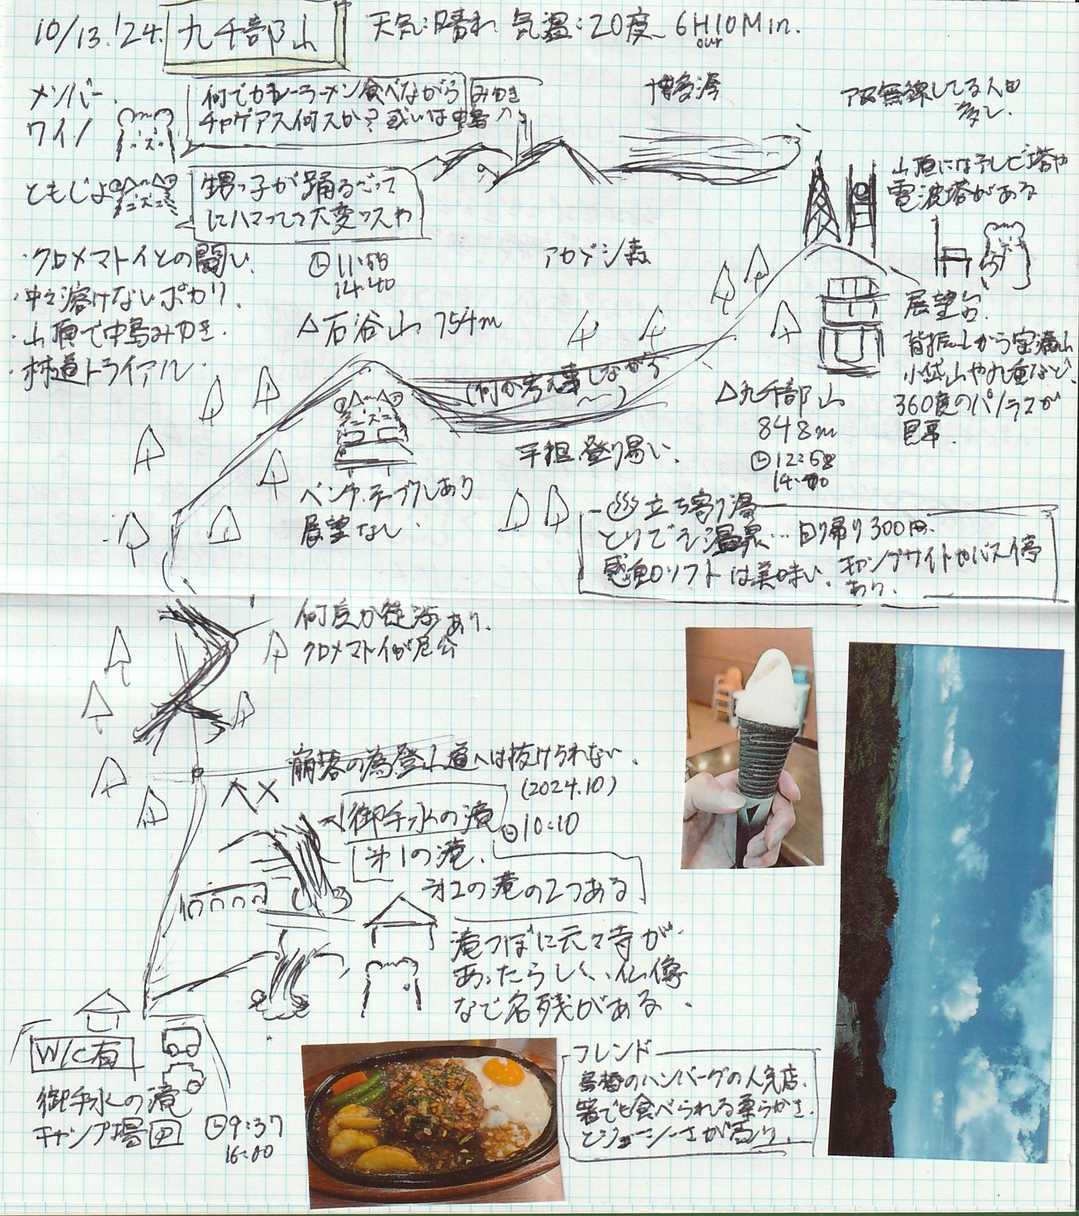 10/13.'24. 九千部山 天気:晴れ 気温:20度 6H10Min.
out
メンバー
ワイノ
何でカレーラーメン食べながら
チャゲアス何スか?或いは中島
みゆき
ともじょ
甥っ子が踊るべって
にハマってって大変ッスわ
博多湾
アマ無線してる人も
多し
山頂にはテレビ塔や
電波塔がある
・クロメマトイとの闘い
・中々溶けないポカリ
・山頂で中島みゆき
・林道トライアル
11:58
14:40
アカガシ森
△石谷山 754m
(何か考え事しながら
〜)
展望台
背振山から宝満山
小岱山や九重など、
360度のパノラマが
見事
△九千部山
848m
12:58
平坦 登り易い
ベンチ、テーブルあり
展望なし
♨立ち寄り湯
とりごえ温泉…日帰り300円
ソフトは美味い。キャンプサイトやバス停
あり
何度か徒渉あり、
クロメマトイが厄介
崩落の為登山道へは抜けられない
(2024.10)
御手水の滝
10:10
第1の滝、
第2の滝の2つある
滝つぼに元々寺が
あったらしく、仏像
など名残がある
W/C有
御手水の滝
キャンプ場 P
9:37
16:00
フレンド
鳥栖のハンバーグの人気店
箸でも食べられる柔らかさ
とジューシーさが売り